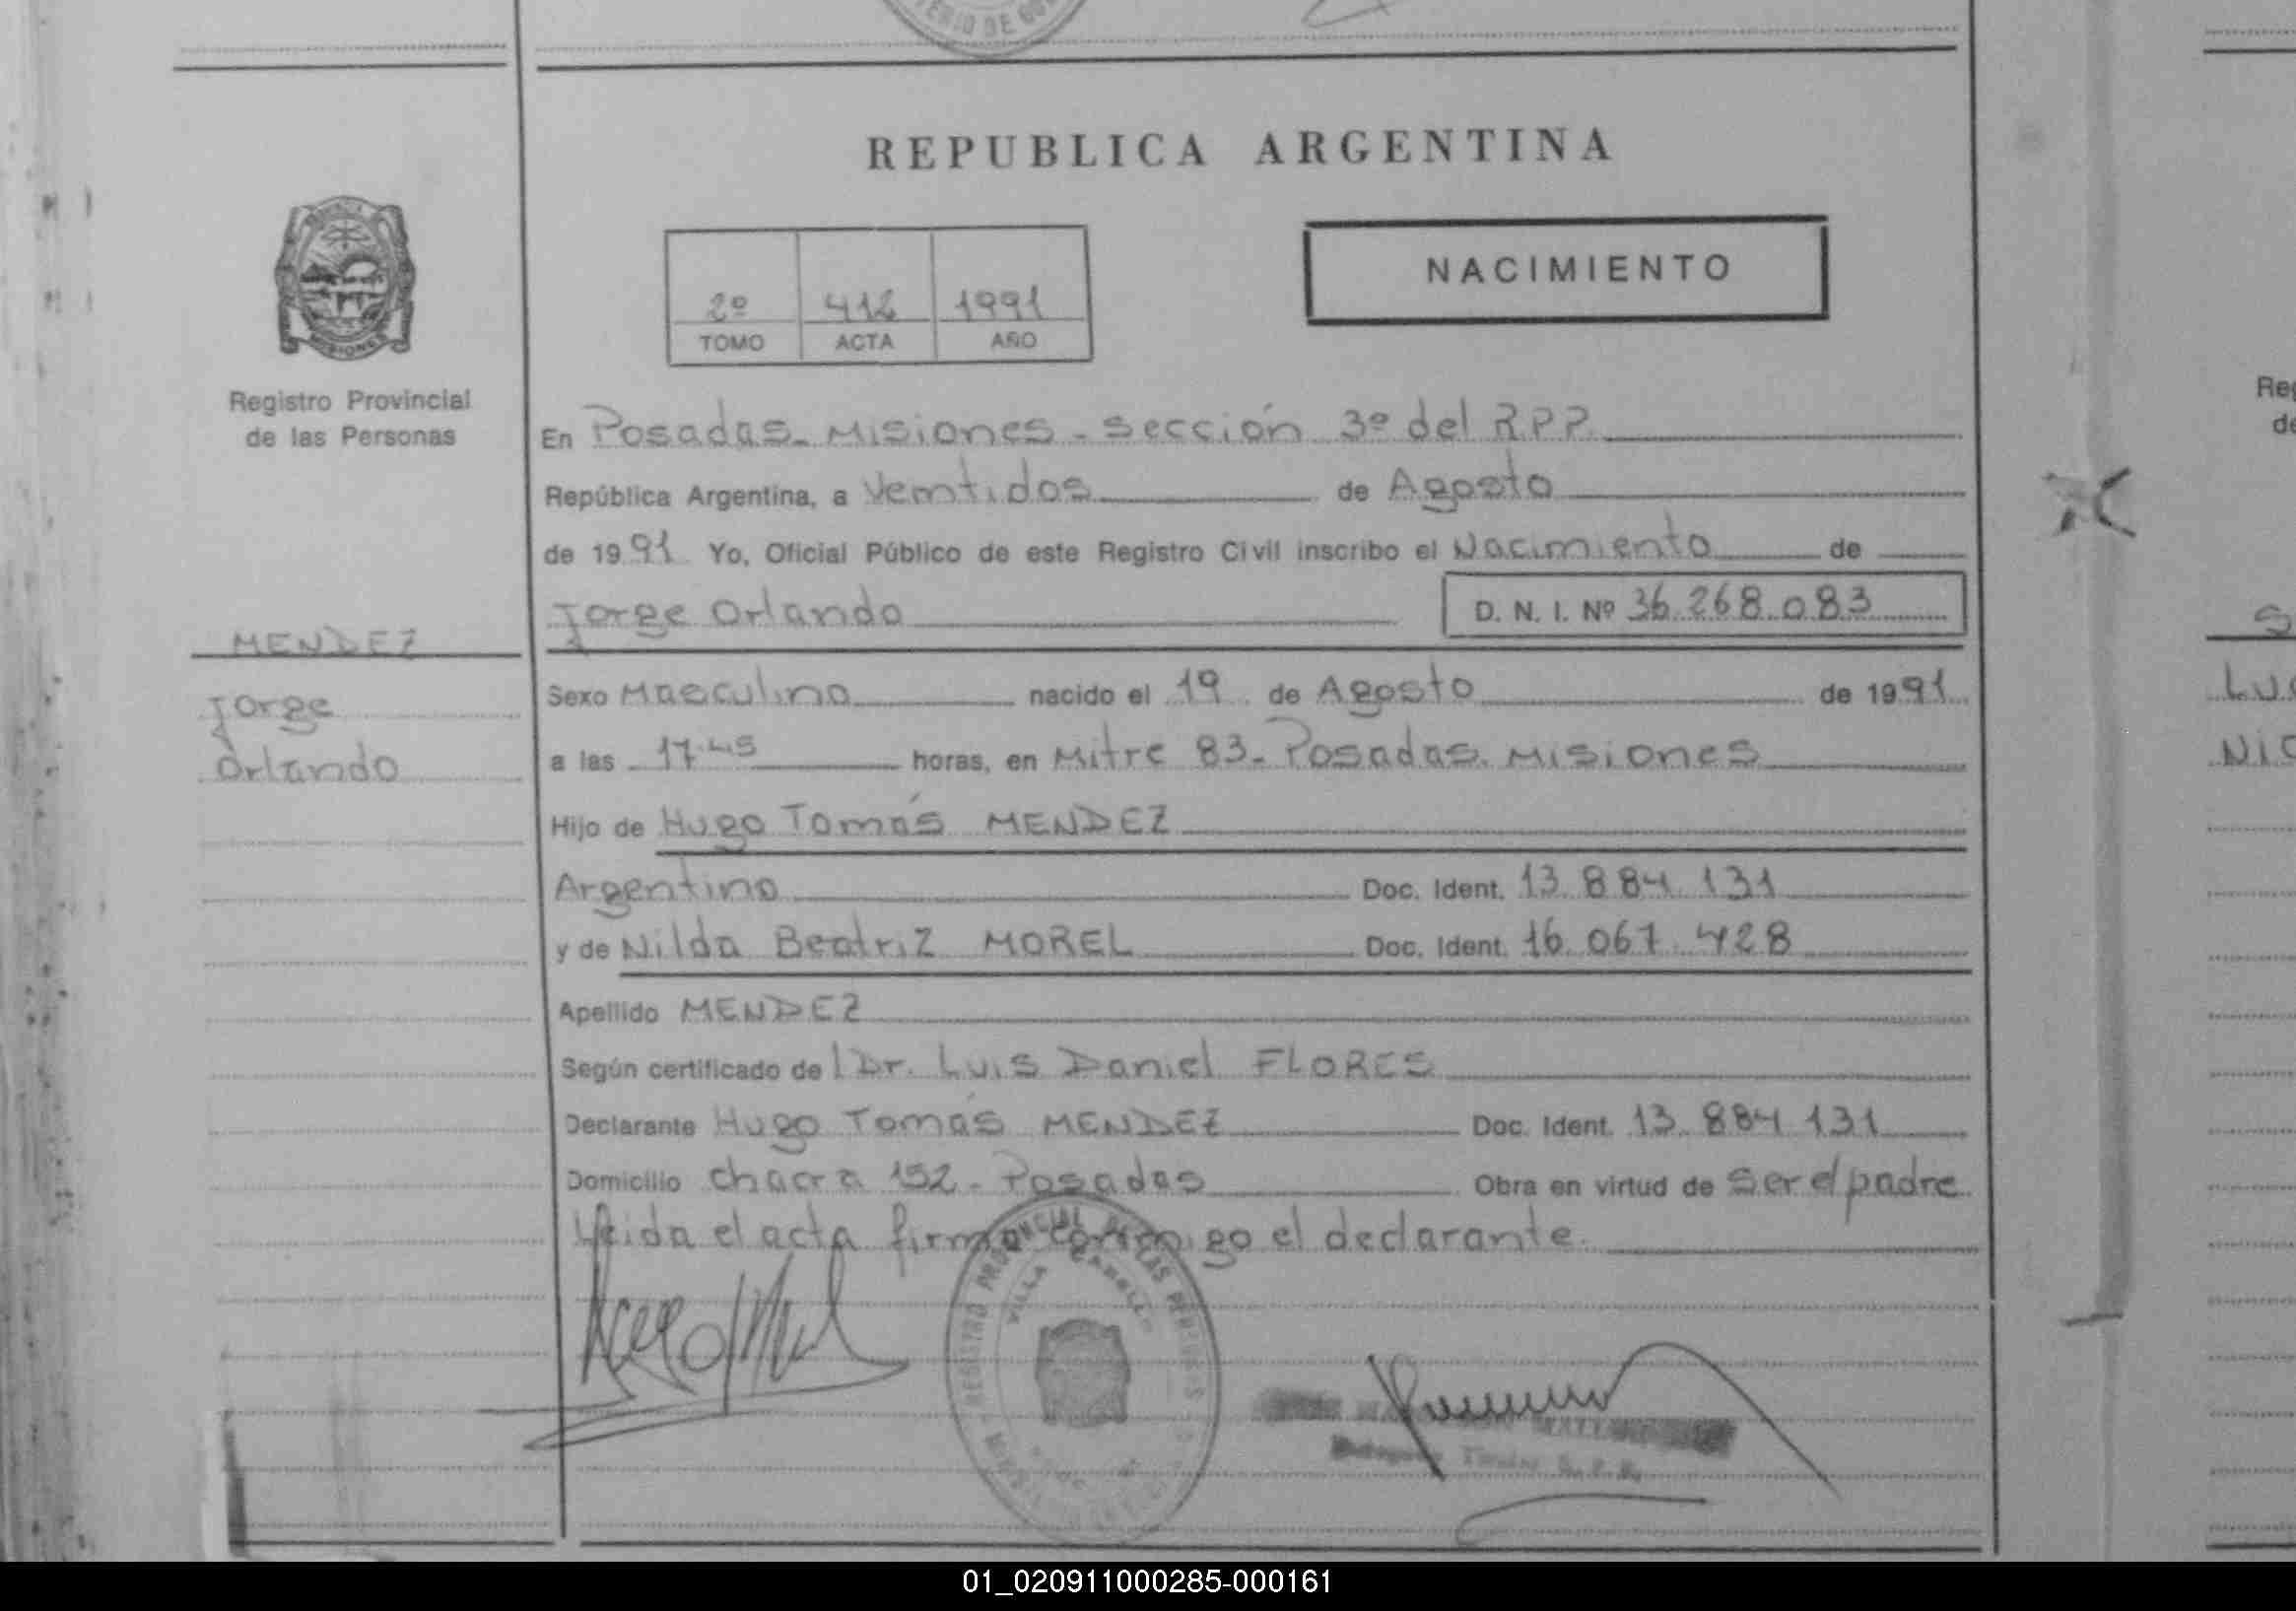 TERIO DE GOB
REPUBLICA ARGENTINA
NACIMIENTO
2º 412 1991
TOMO ACTA AÑO
MISIONES
Registro Provincial
de las Personas
En Posadas - Misiones - Sección 3º del R.P.P.
República Argentina, a Veintidos de Agosto
de 1991 Yo, Oficial Público de este Registro Civil inscribo el Nacimiento de
Jorge Orlando D. N. I. Nº 36.268.083
MENDEZ
Jorge
Orlando
Sexo Masculino nacido el 19 de Agosto de 1991
a las 17:45 horas, en Mitre 83 - Posadas. Misiones
Hijo de Hugo Tomás MENDEZ
Argentino Doc. Ident. 13.884.131
y de Nilda Beatriz MOREL Doc. Ident. 16.067.428
Apellido MENDEZ
Según certificado de l Dr. Luis Daniel FLORES
Declarante Hugo Tomás MENDEZ Doc. Ident. 13.884.131
Domicilio Chacra 152 - Posadas Obra en virtud de Ser el padre
Leida el acta firma conmigo el declarante.
REGISTRO PROVINCIAL DE LAS PERSONAS
VILLA CABELLO
Titular R. P. P.
Reg
de
S
Lu
Ni
01_020911000285-000161